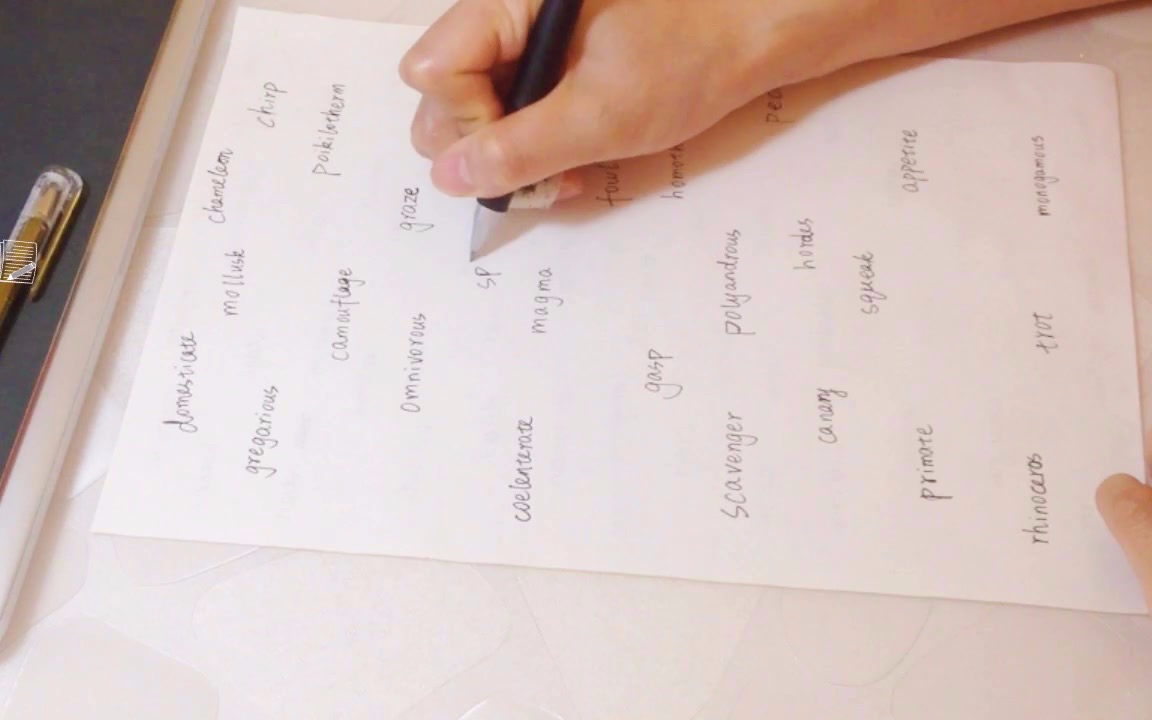 domesticate
mollusk
chameleon
chirp
gregarious
camouflage
poikilotherm
omnivorous
graze
sp
coelenterate
magma
gasp
scavenger
polyandrous
canary
hordes
squeak
primate
appetite
rhinoceros
trot
monogamous